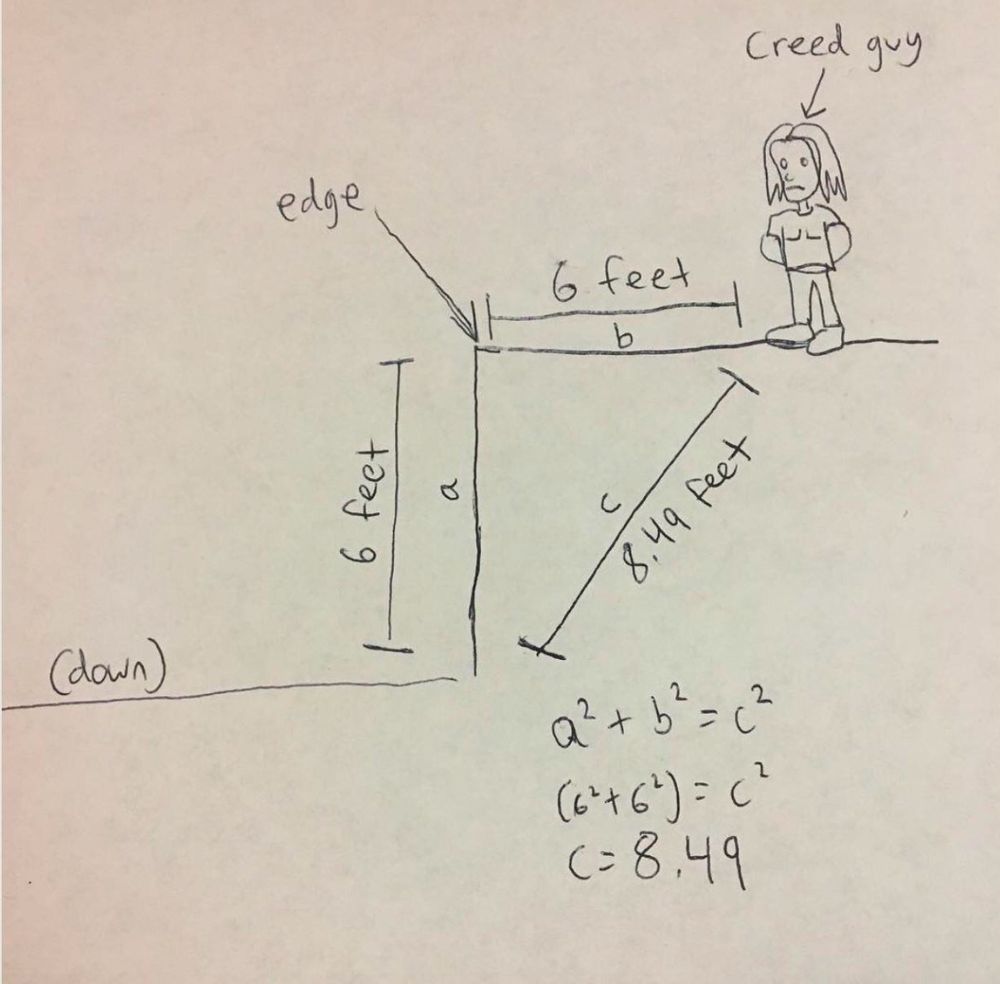 Creed guy
edge
6 feet
b
6 feet
a
c
8.49 feet
(down)
a² + b² = c²
(6² + 6²) = c²
c = 8.49